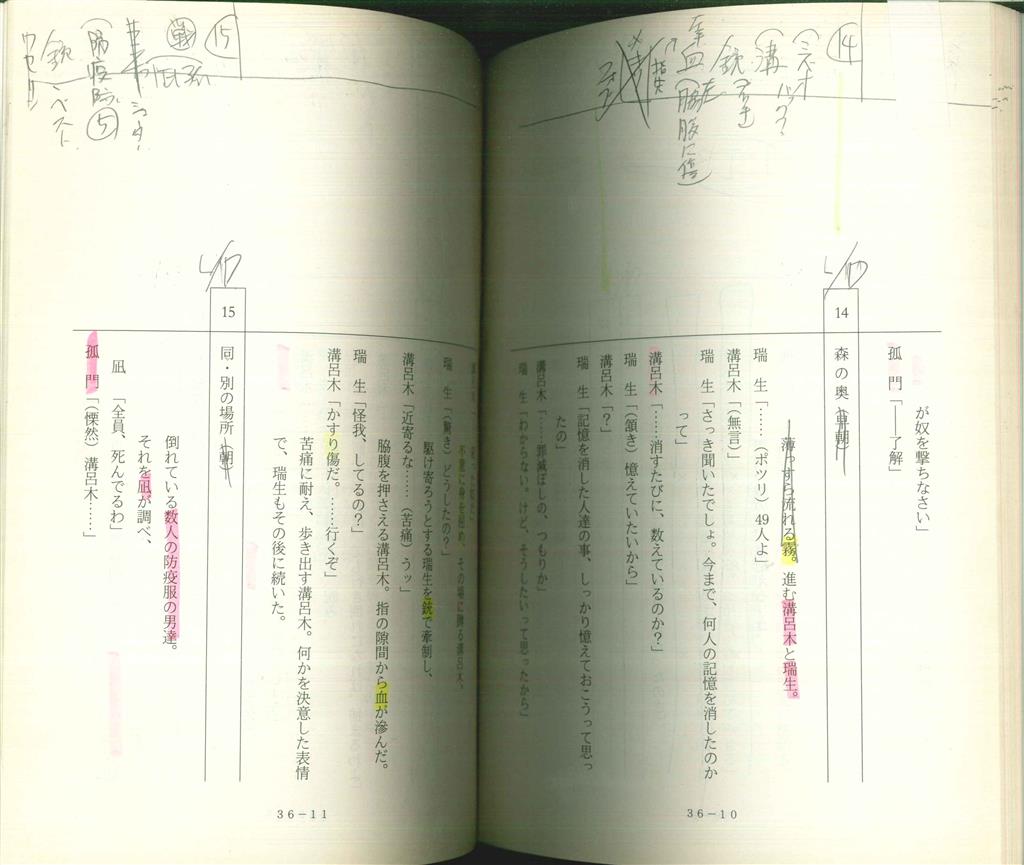 ⑭
が奴を撃ちなさい」
孤　門「――了解」
14　森の奥（早朝）
薄っすら流れる霧。進む溝呂木と瑞生。
瑞　生「……（ポツリ）49人よ」
溝呂木「（無言）」
瑞　生「さっき聞いたでしょ。今まで、何人の記憶を消したのか
って」
溝呂木「……消すたびに、数えているのか？」
瑞　生「（頷き）憶えていたいから」
溝呂木「？」
瑞　生「記憶を消した人達の事、しっかり憶えておこうって思っ
たの」
溝呂木「……罪滅ぼしの、つもりか」
瑞　生「わからない。けど、そうしたいって思ったから」
36－10
⑮
不意に身を屈め、その場に蹲る溝呂木。
瑞　生「（驚き）どうしたの？」
駆け寄ろうとする瑞生を銃で牽制し、
溝呂木「近寄るな……（苦痛）うッ」
脇腹を押さえる溝呂木。指の隙間から血が滲んだ。
瑞　生「怪我、してるの？」
溝呂木「かすり傷だ。……行くぞ」
苦痛に耐え、歩き出す溝呂木。何かを決意した表情
で、瑞生もその後に続いた。
15　同・別の場所（朝）
倒れている数人の防疫服の男達。
それを凪が調べ、
凪　「全員、死んでるわ」
孤　門「（慄然）溝呂木……」
36－11